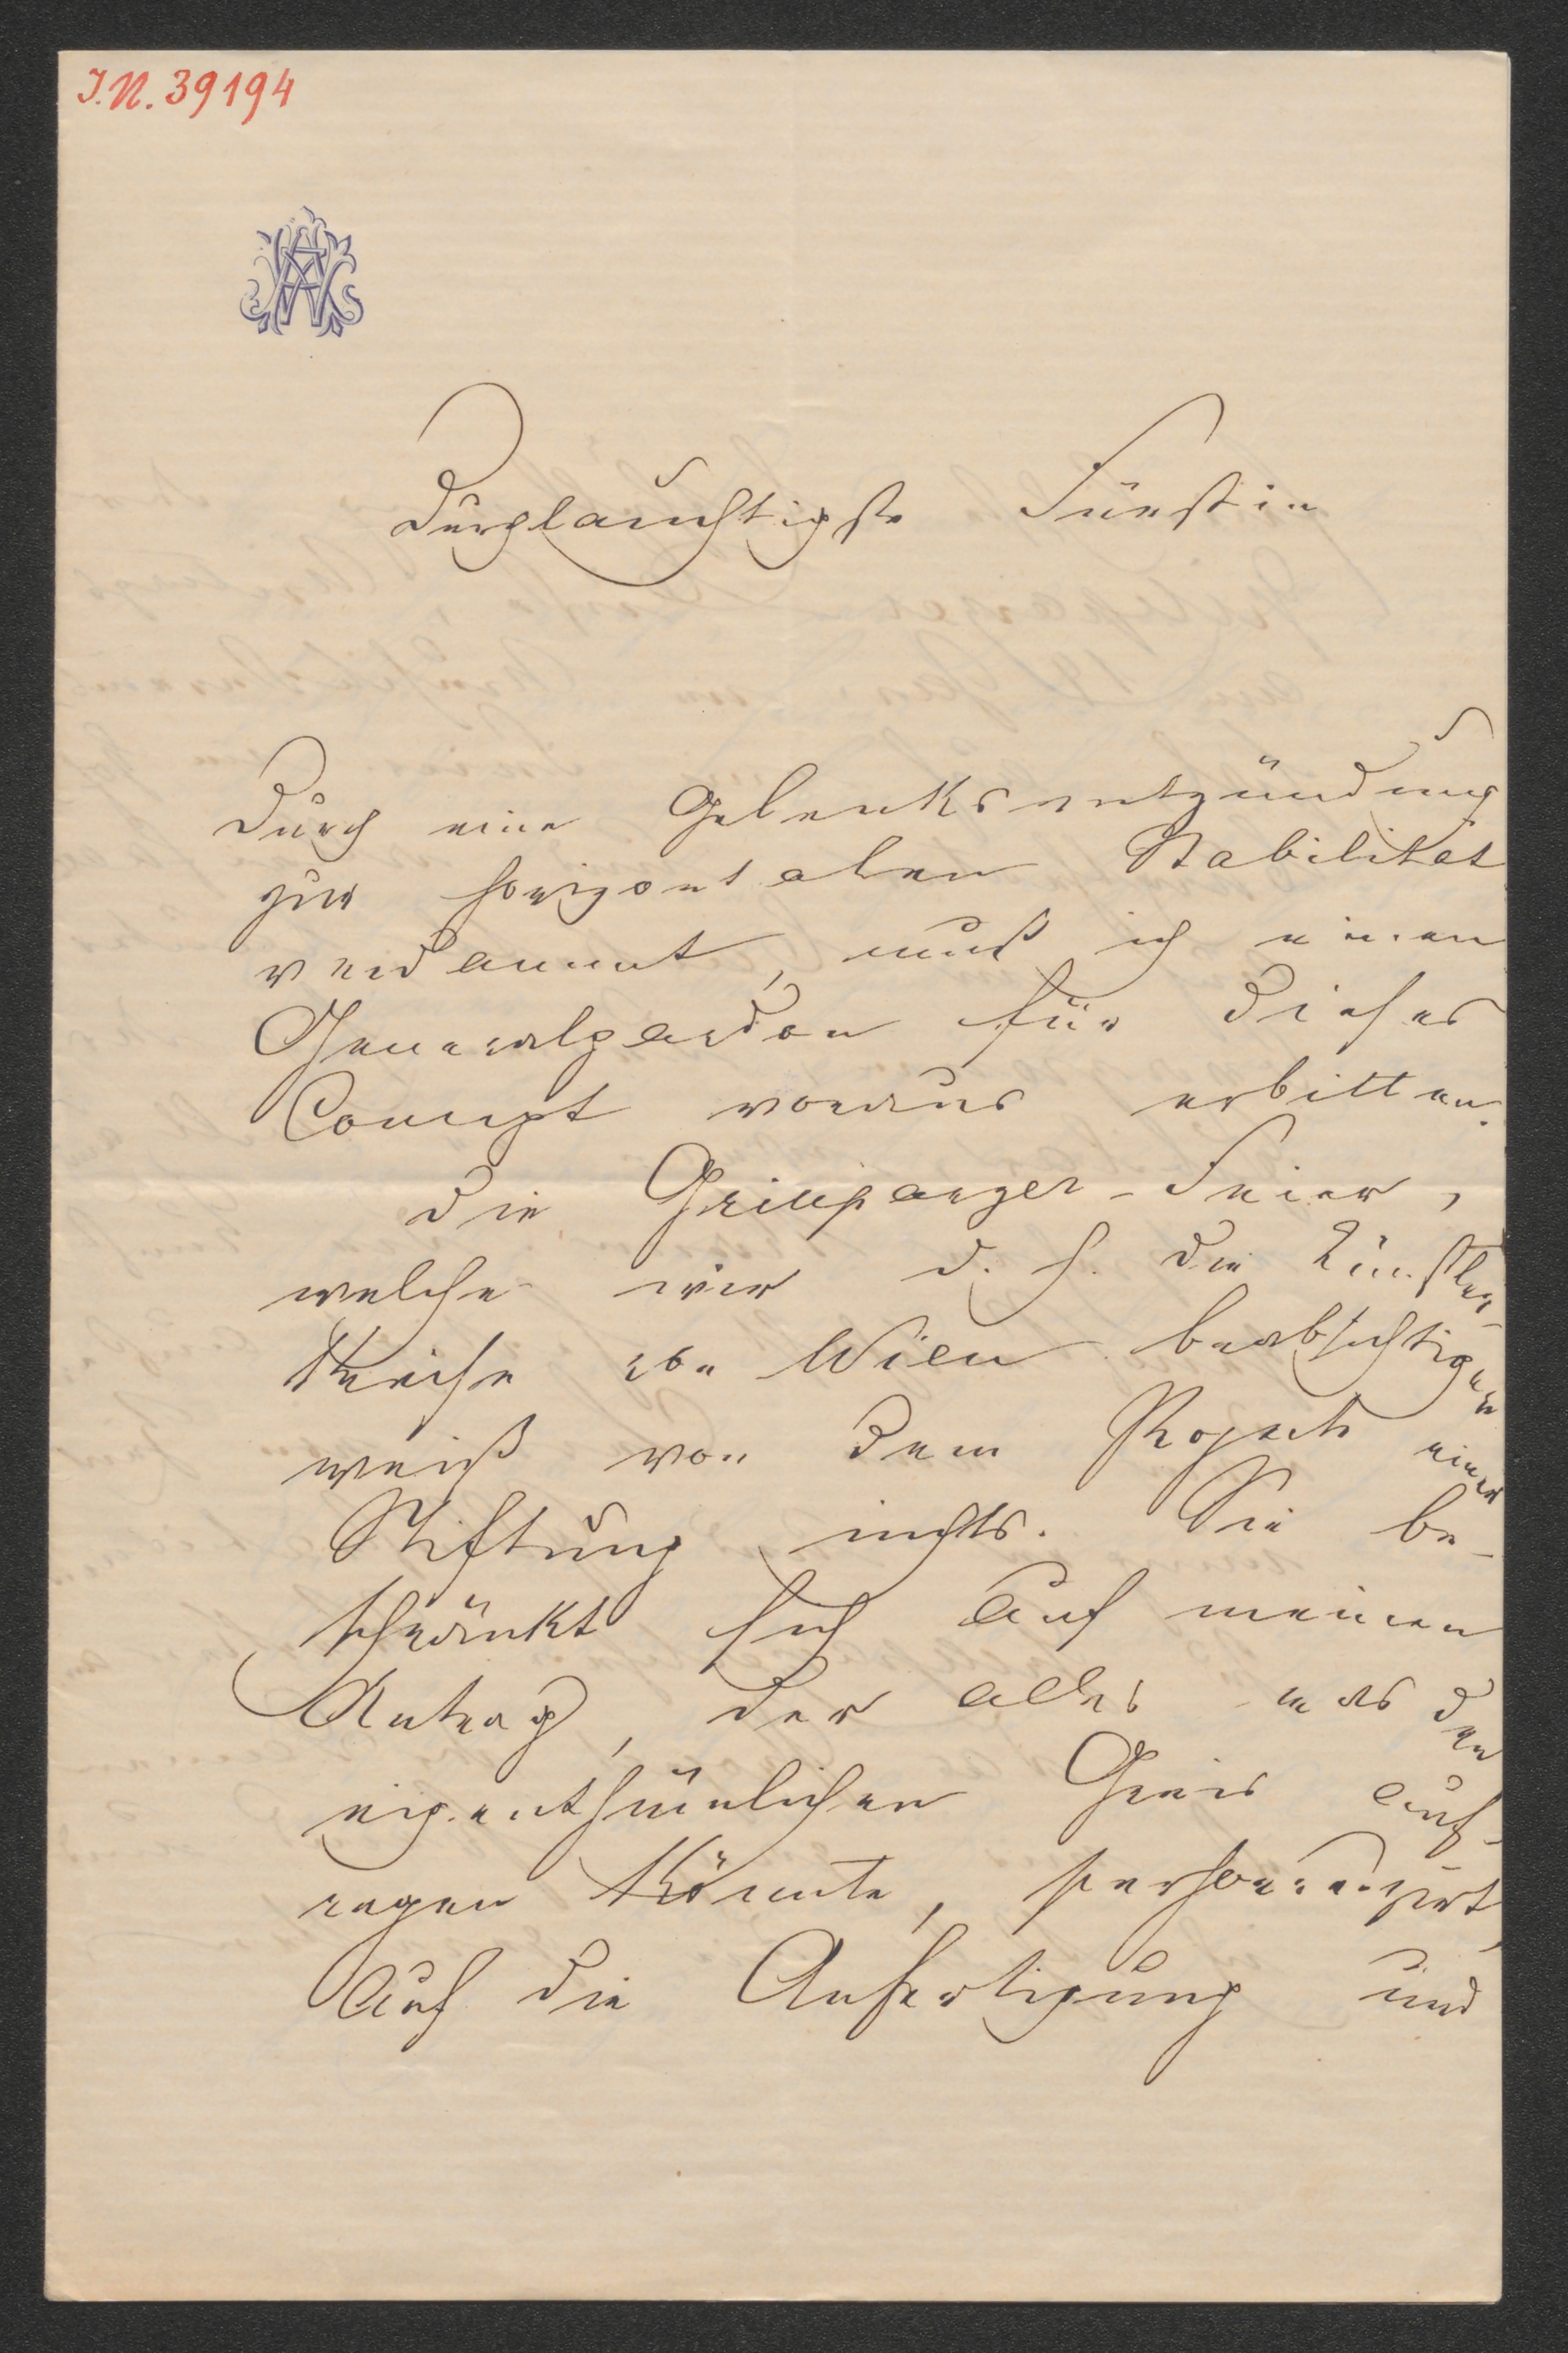 I.N. 39194
Durchlauchtigste Fürstin
Durch eine Gelenksentzündung
zur horizontalen Stabilität
verdammt, muß ich einen
Generalpardon für dieses
Concept voraus erbitten.
Die Grillparzer-Feier,
welche wir d. h. die Künstler-
Kreise Wien beabsichtigen
weiß von dem Project einer
Stiftung nichts. Sie be-
schränkt sich auf meinen
Antrag, der alles was den
eigenthümlichen Greis auf-
regen könnte,
auf die Anfertigung und